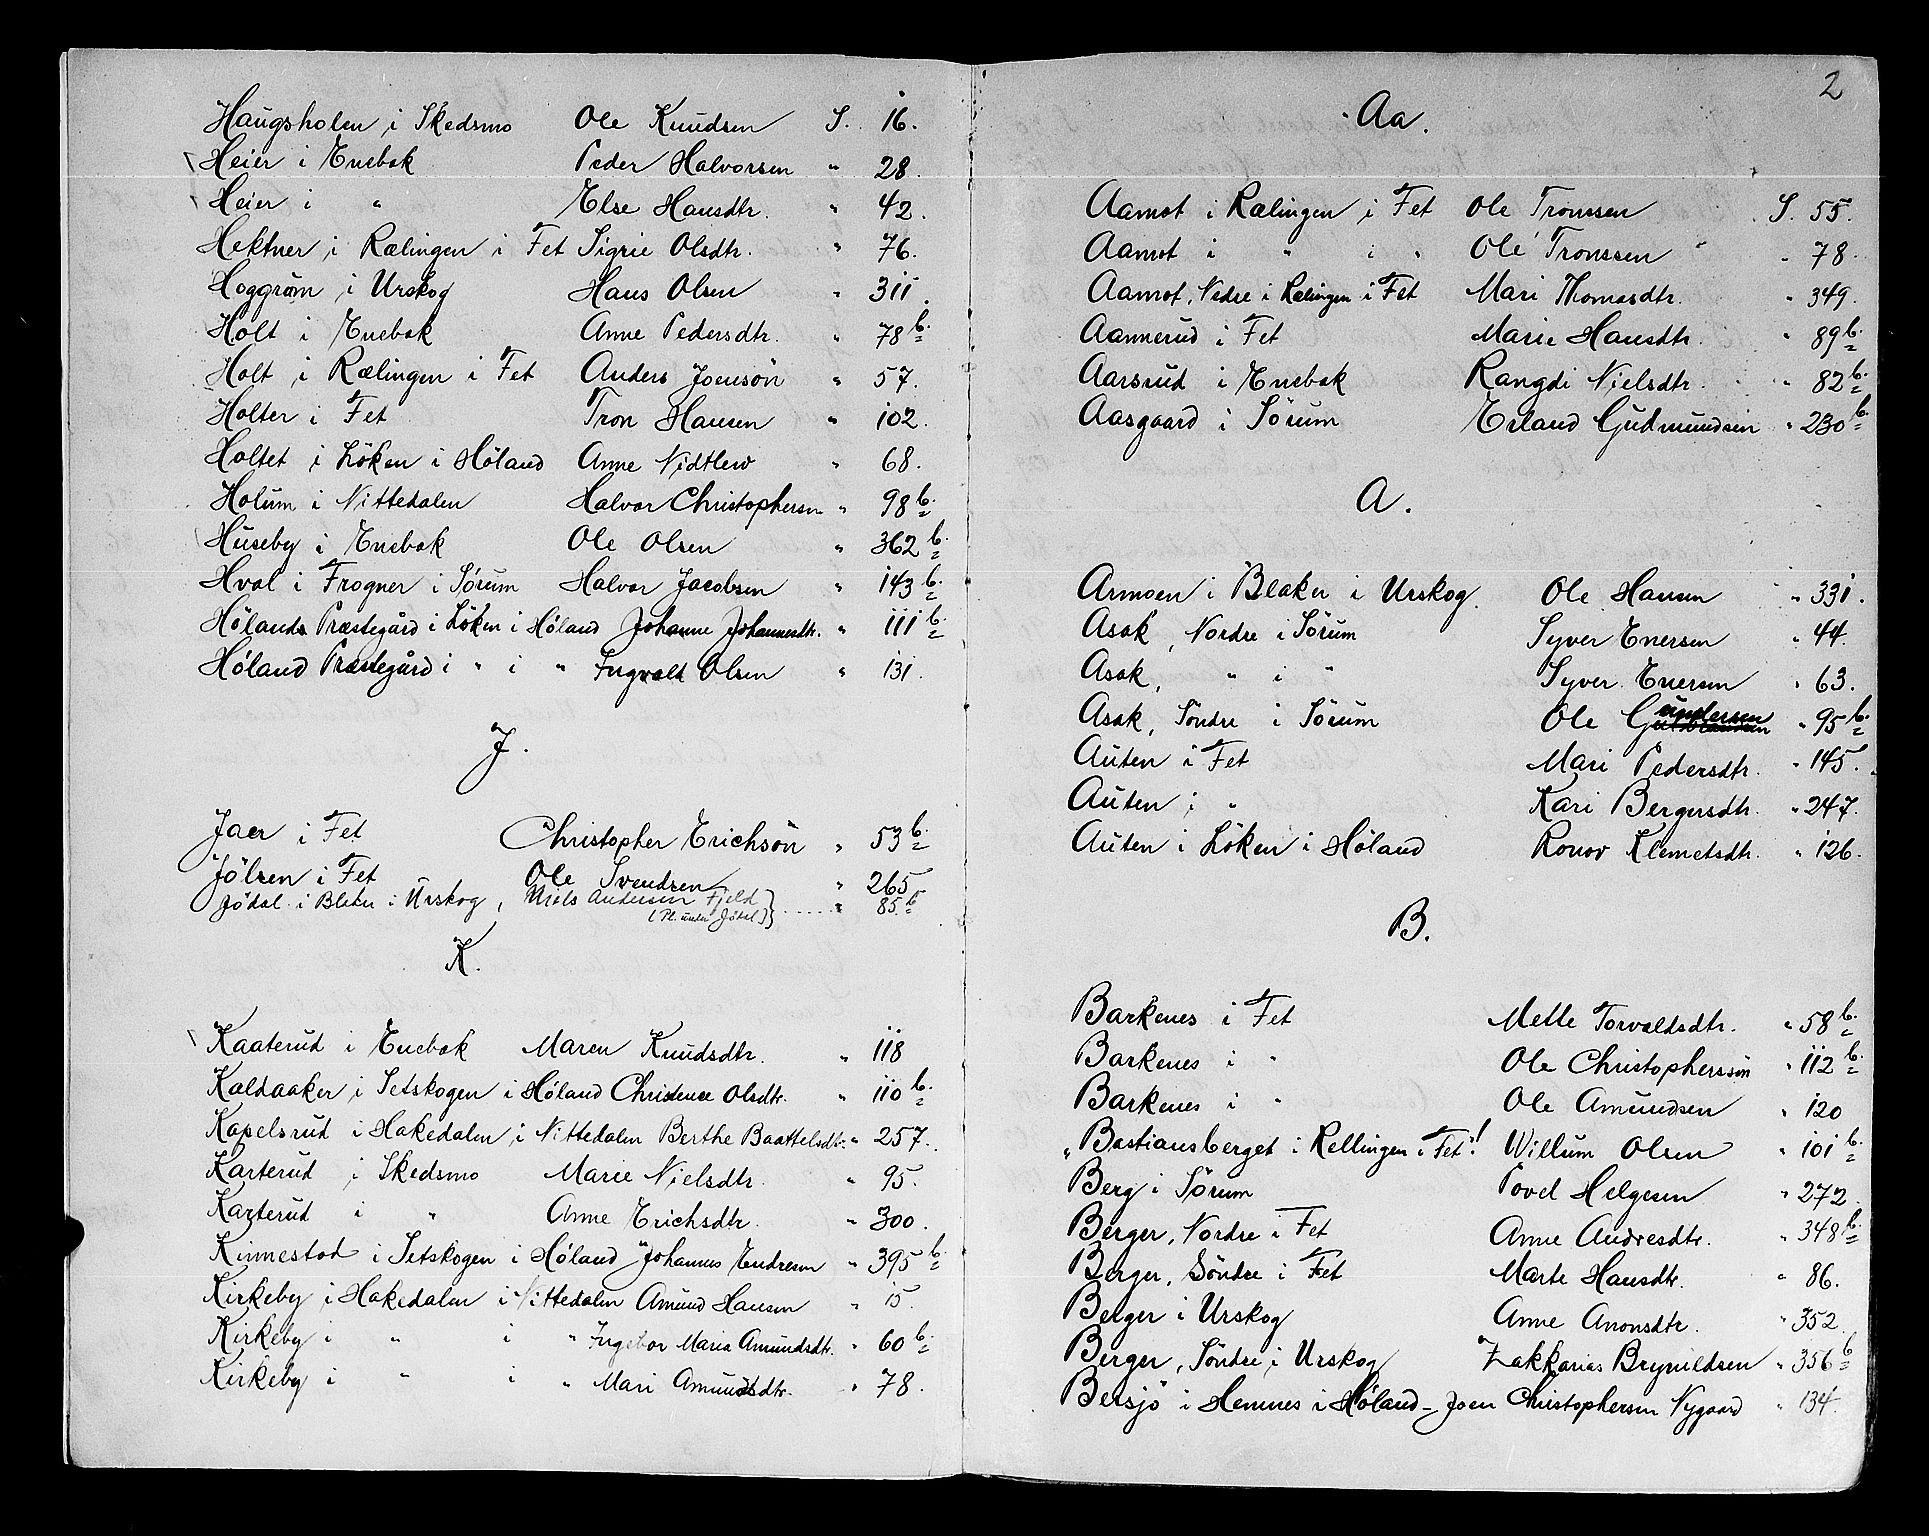 Haugsholen i Skedsmo Ole Knudsen S. 16.
Heier i Enebak Peder Halvorsen " 28.
Heier i " Else Hansdtr. " 42.
Hektner i Rælingen i Fet Sigrie Olsdtr. " 76.
Hoggrøm i Urskog Hans Olsen " 311.
Holt i Enebak Anne Pedersdtr. " 78 b.
Holt i Rælingen i Fet Anders Joensön " 57.
Holter i Fet Tron Hansen " 102.
Holtet i Löken i Höland Anne Nidtlew " 68.
Holum i Nittedalen Halvor Christophersn " 98 b.
Huseby i Enebak Ole Olsen " 362 b.
Hval i Frogner i Sørum Halvor Jacobsen " 143 b.
Hølands Præstegård i Løken i Høland Johanne Johannesdtr. " 111 b.
Høland Præstegård i " i " Ingvald Olsen " 131.
J.
Jaer i Fet Christopher Erichsön " 53 b.
Jölsen i Fet Ole Svendsen " 265
Jödal i Blaker i Urskog, Niels Andersen Fjeld } ..... " 85 b
(Pl. under Jödal)
K.
Kaaterud i Enebak Maren Knudsdtr. " 118
Kaldaaker i Setskogen i Höland Christence Olsdtr. " 110 b.
Kapelsrud i Hakedalen i Nittedalen Berthe Baattelsdtr. " 257.
Karterud i Skedsmo Marie Nielsdtr. " 95.
Karterud i " Anne Erichsdtr. " 300.
Kinnestad i Setskogen i Höland Johannes Endresen " 395 b.
Kirkeby i Hakedalen i Nittedalen Amund Hansen " 15.
Kirkeby i " i " Ingebor Maria Amundsdtr. " 60 b.
Kirkeby i " i " Mari Amundsdtr. " 78.
2
Aa.
Aamot i Rælingen i Fet Ole Tronssen S. 55.
Aamot i " i " Ole Tronssen " 78.
Aamot, Nedre i Rælingen i Fet Mari Thomasdtr. " 349.
Aannerud i Fet Marie Hansdtr. " 89 b.
Aarsrud i Enebak Rangdi Nielsdtr. " 82 b.
Aasgaard i Sörum Erland Gudmundsen " 230 b.
A.
Armoen i Blaker i Urskog. Ole Hansen " 331.
Asak, Nordre i Sörum Syver Enersen " 44.
Asak, " i " Syver Enersen " 63.
Asak, Söndre i Sörum Ole Gundersen " 95 b.
Auten i Fet Mari Pedersdtr. " 145.
Auten i " Kari Bergersdtr. " 247.
Auten i Löken i Höland Ronov Klemetsdtr. " 126.
B.
Barkenes i Fet Mette Torvaldsdtr. " 58 b.
Barkenes i " Ole Christopherssön " 112 b.
Barkenes i " Ole Amundsen " 120
"Bastiansberget i Rellingen i Fet"! Willum Olsen " 101 b.
Berg i Sörum Povel Helgesen " 272.
Berger, Nordre i Fet Anne Andresdtr. " 348 b.
Berger, Söndre i Fet Marte Hansdtr. " 86.
Berger i Urskog Anne Anonsdtr. " 352.
Berger, Söndre i Urskog Zakkarias Brynildsen " 356 b
Bersjö i Hemnes i Höland - Joen Christophersen Nygaard " 134.